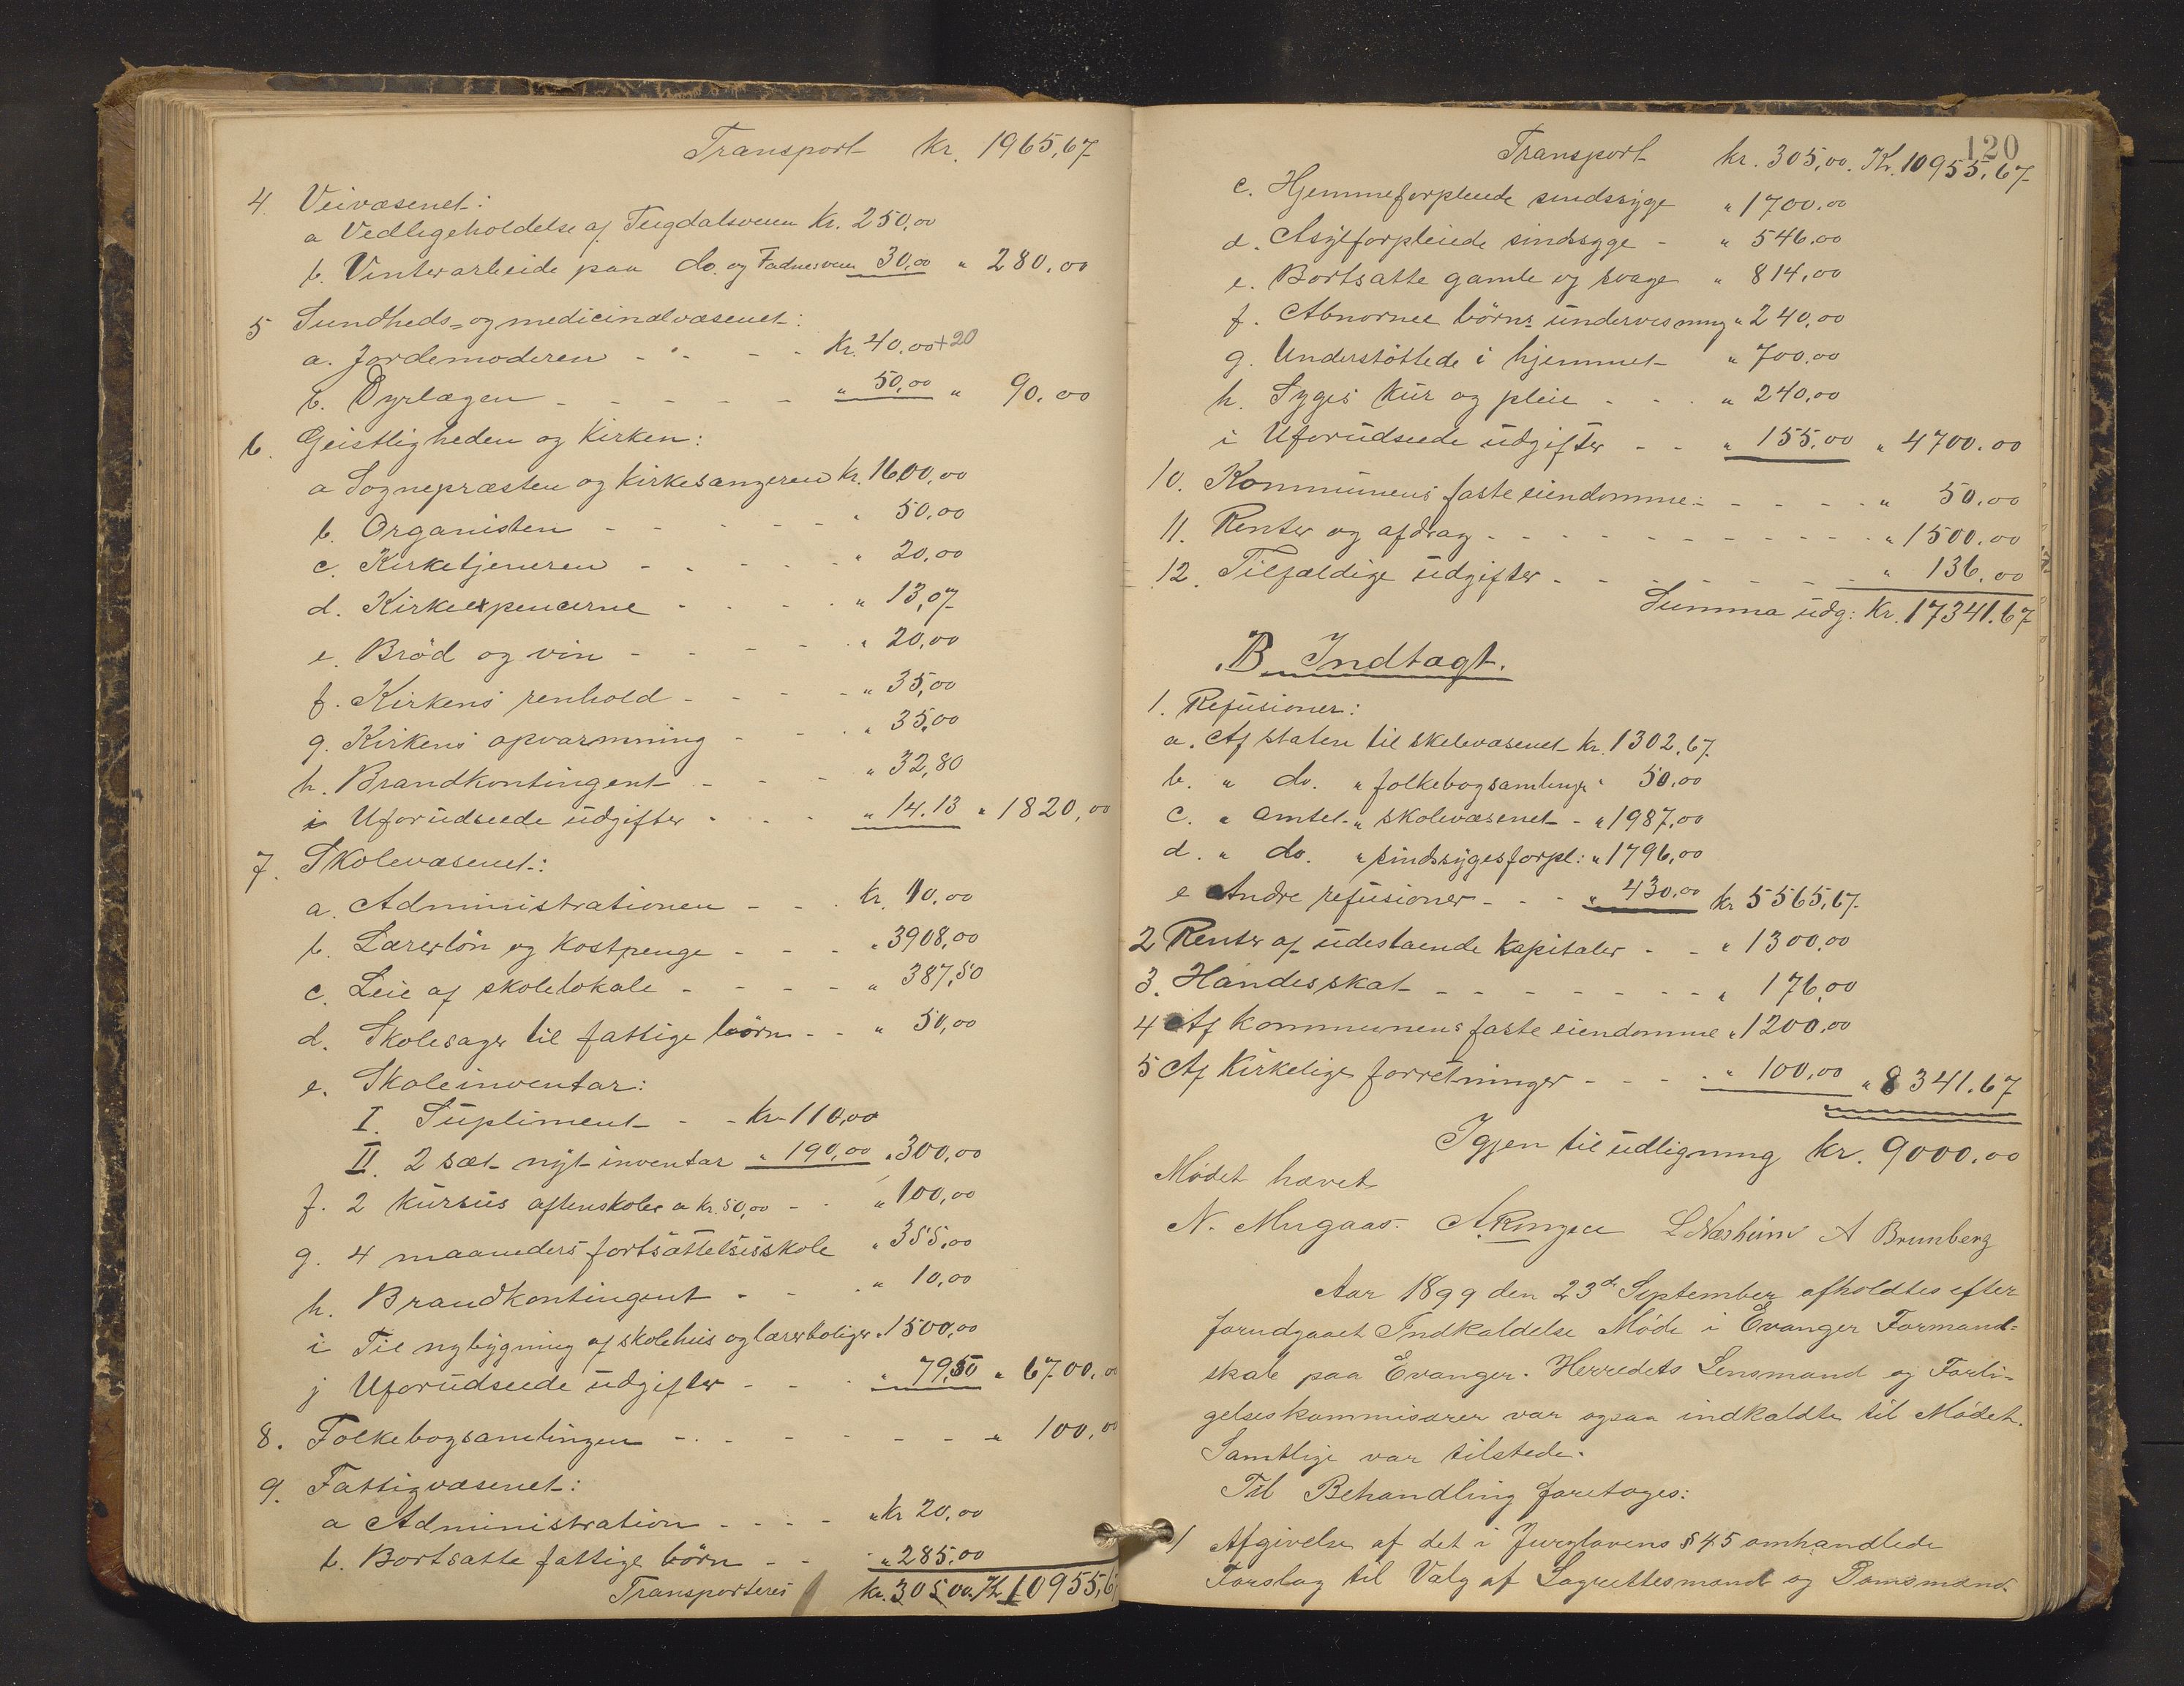 Transport kr. 1965,67
4. Veivæsenet:
a Vedligeholdelse af Teigdalsveien Kr. 250,00
b. Vinterarbeide paa do. og Fadnesveien 30,00 " 280,00
5 Sundheds- og medicinalvæsenet:
a. Jordemoderen - - - - Kr. 40,00 + 20
b. Dyrlægen - - - - - " 50,00 " 90,00
6. Geistligheden og Kirken:
a Sognepræsten og kirkesangeren kr. 1600,00
b. Organisten - - - - - " 50,00
c. Kirketjeneren - - - - - " 20,00
d. Kirkeexpencerne - - - - " 13,07
e. Brød og vin - - - - - " 20,00
f. Kirkens renhold - - - - " 35,00
g. Kirkens opvarmning - - - " 35,00
h. Brandkontingent - - - " 32,80
i Uforudseede udgifter - - - " 14.13 " 1820,00
7. Skolevæsenet:
a. Administrationen - - - Kr. 10,00
b. Lærerløn og kostpenge - - - " 3908,00
c. Leie af skolelokale - - - - " 387,50
d. Skolesager til fattige børn - - " 50,00
e. Skoleinventar:
I. Supliment - - Kr 110,00
II. 2 sæt nyt inventar " 190,00 " 300,00
f. 2 kursus aftenskoler a kr. 50,00 - - " 100,00
g. 4 maaneders fortsættelsesskole " 355,00
h. Brandkontingent - - - " 10,00
i Til nybygning af skolehus og lærerboliger " 1500,00
j Uforudseede udgifter - - - " 79,50 " 6700,00
8. Folkebogsamlingen - - - - - - - " 100,00
9. Fattigvæsenet:
a Administration - - - - " Kr 20,00
b. Bortsatte fattige børn - - " 285,00
Transporteres kr. 305,00. Kr. 10955,67
120
Transport kr. 305,00. Kr. 10955,67
c. Hjemmeforpleiede sindssyge " 1700,00
d. Asylforpleiede sindssyge - " 546,00
e. Bortsatte gamle og svage " 814,00
f. Abnorme børns undervisning " 240,00
g. Understøttede i hjemmet " 700,00
h. Syges kur og pleie - - - " 240,00
i Uforudseede udgifter - - " 155,00 " 4700.00
10. Kommunens faste eiendomme: - - - - - " 50,00
11. Renter og afdrag - - - - - - - - - - - " 1500,00
12. Tilfældige udgifter - - - - - - - - " 136,00
Summa udg: Kr. 17341.67
B. Indtægt.
1. Refusioner:
a. Af staten til skolevæsenet kr. 1302,67
b. " do. " folkebogsamlinger " 50,00
c. " amtet " skolevæsenet - " 1987,00
d. " do. " sindssygesforpl: " 1796,00
e Andre refusioner - - - " 430,00 kr 5565,67
2 Renter af udestaaende kapitaler - - " 1300,00
3. Handesskat - - - - - - - - " 176,00
4 Af kommunens faste eiendomme " 1200,00
5 Af Kirkelige forretninger - - - - " 100,00 " 8341.67
Igjen til udligning kr. 9000,00
Mødet hævet
N. Mugaas. A. Ringen L Næsheim A Brunberg
Aar 1899 den 23de September afholdtes efter
forudgaaet Indkaldelse Møde i Evanger Formand-
skab paa Evanger. Herredets Lensmand og Forli-
gelseskommisærer var ogsaa indkaldte til Mødet.
Samtlige var tilstede.
Til Behandling foretoges:
1/ Afgivelse af det i Jurylovens § 45 omhandlede
Forslag til Valg af Lagrettesmænd og Domsmænd.